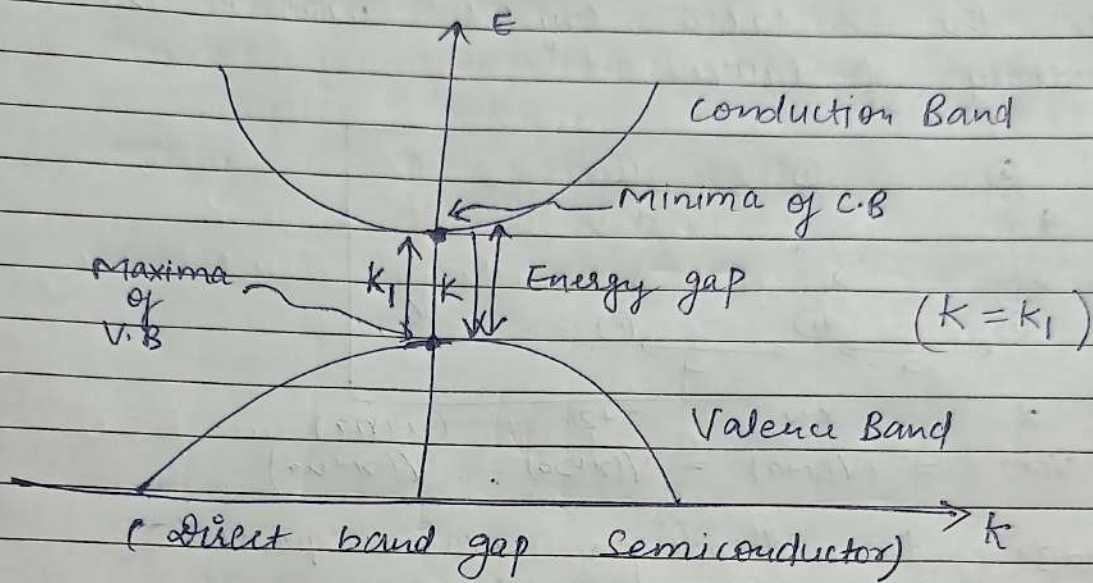 E
Conduction Band
Minima of C.B
Maxima
of
V.B
K₁
K
Energy gap
(K = K₁)
Valence Band
k
(Direct band gap Semiconductor)